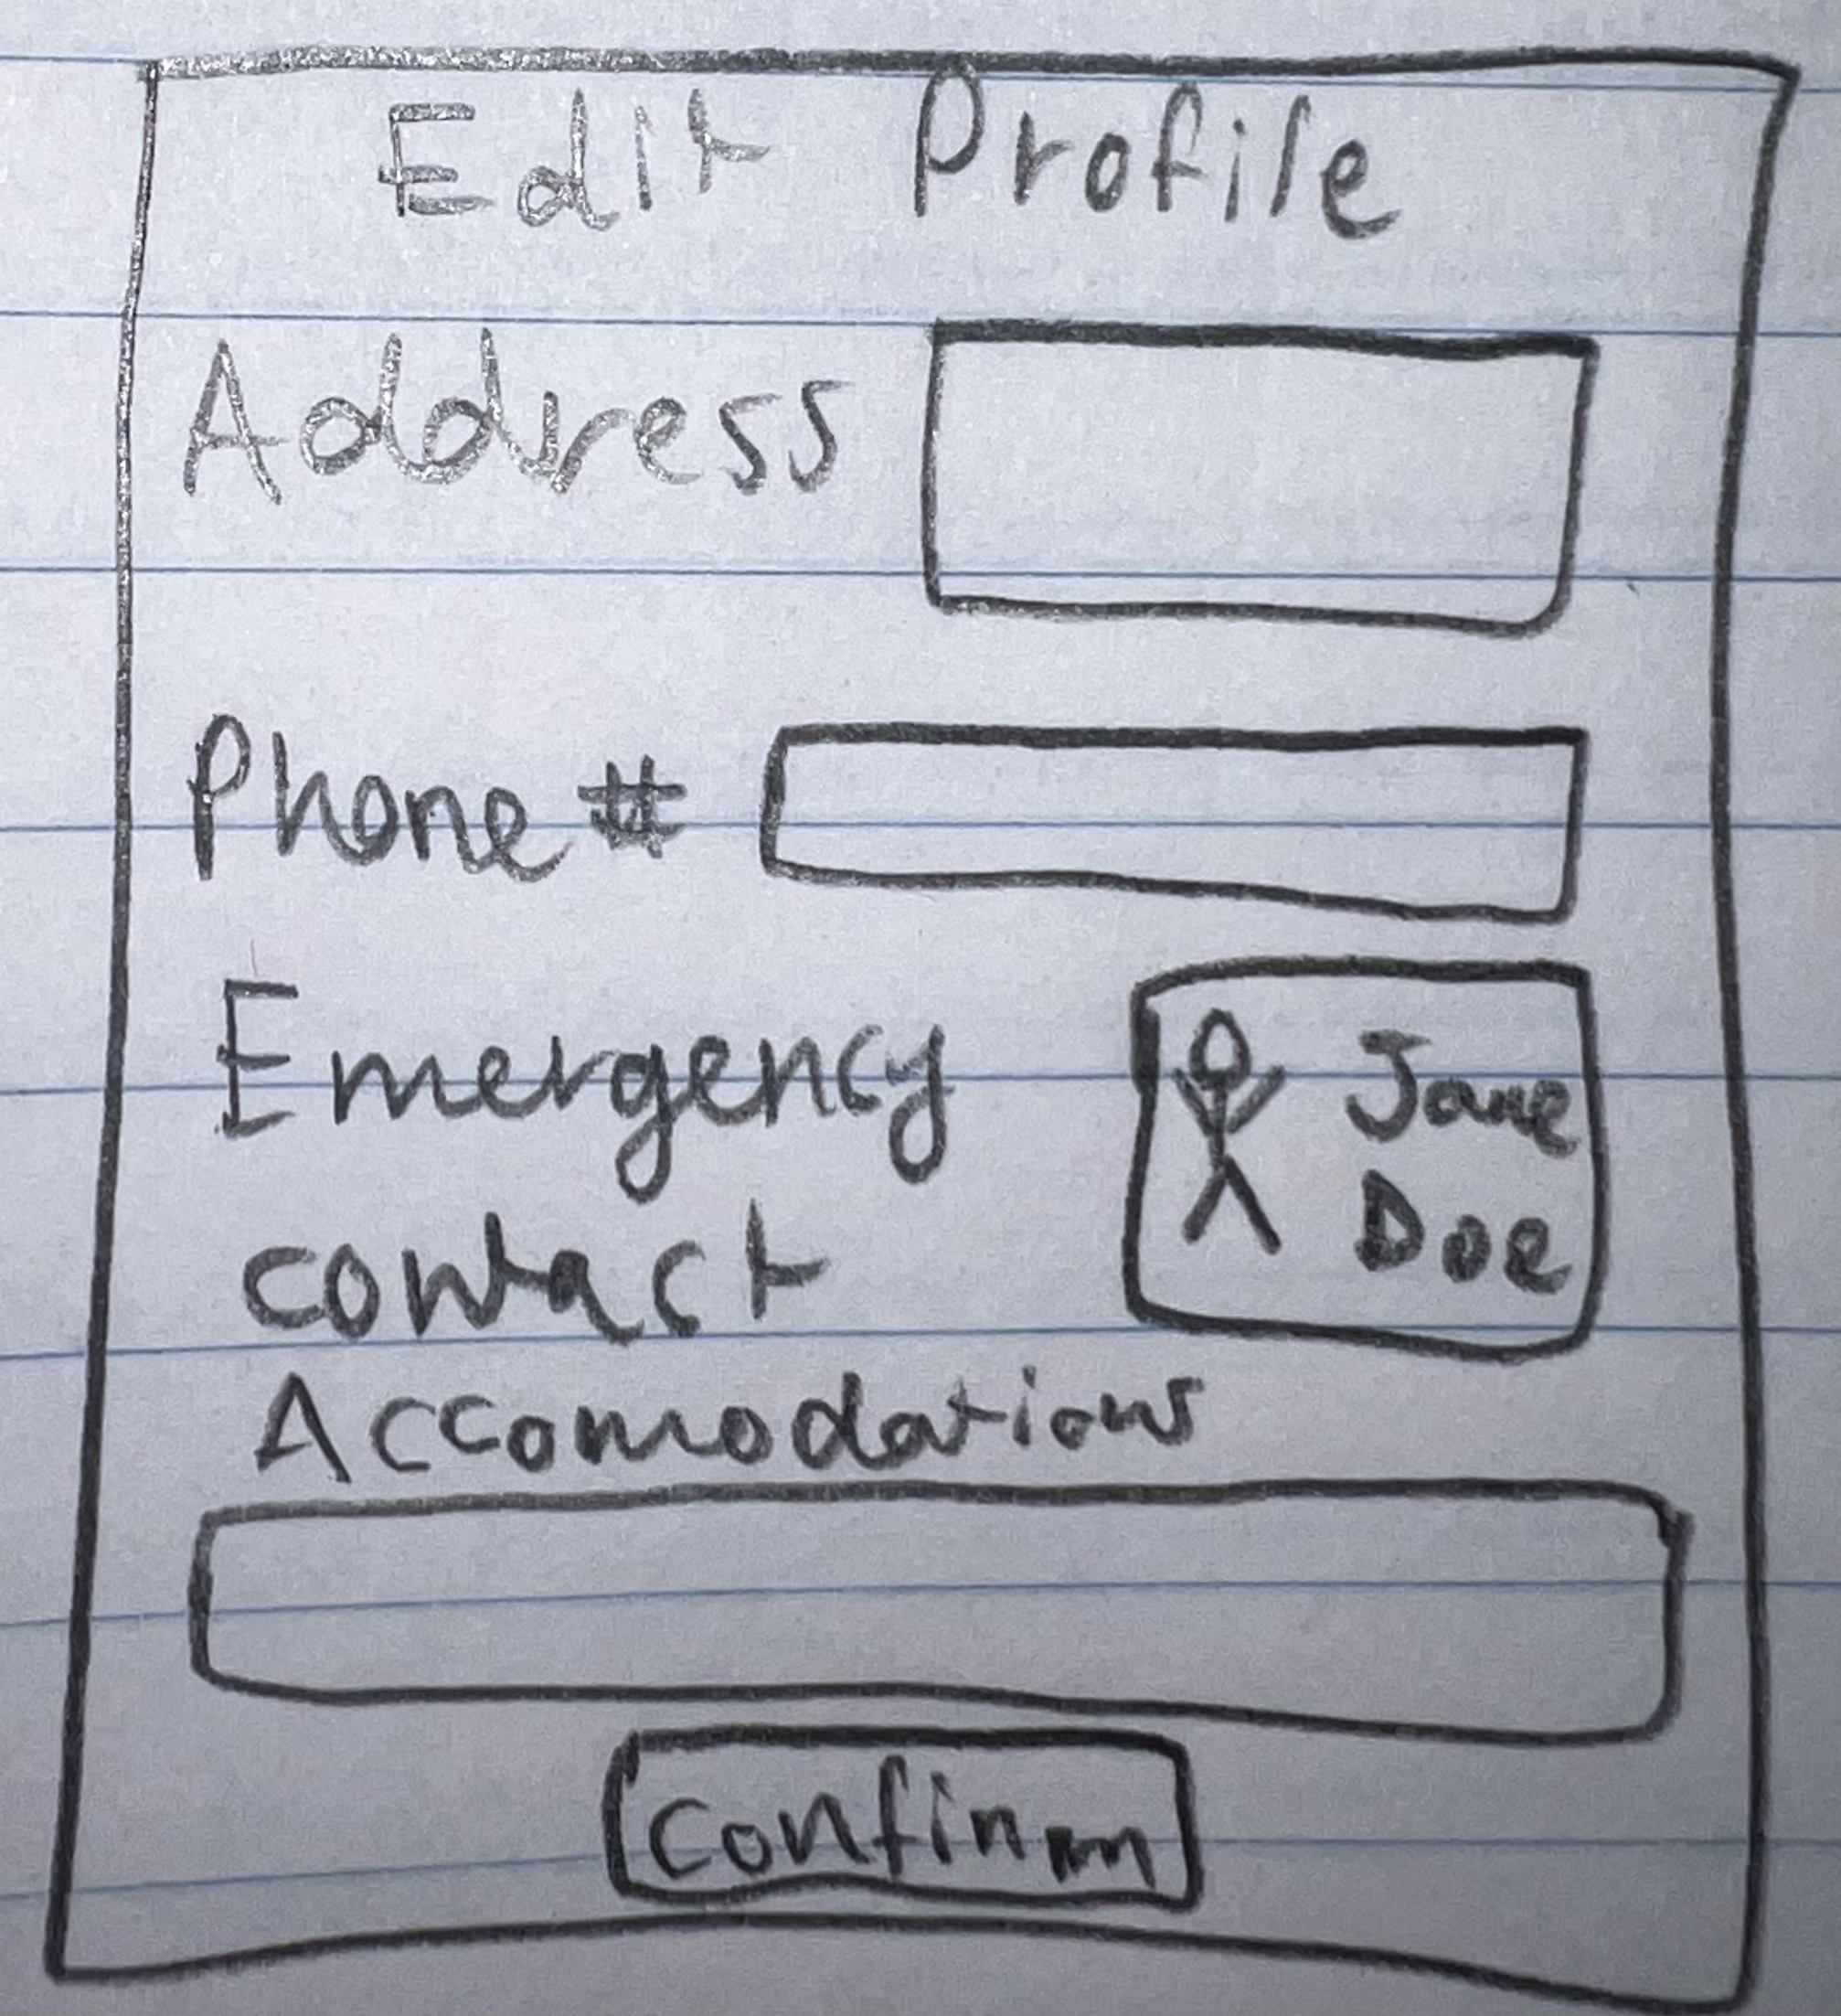 Edit Profile
Address
Phone #
Emergency
contact
Jane
Doe
Accomodations
Confirm